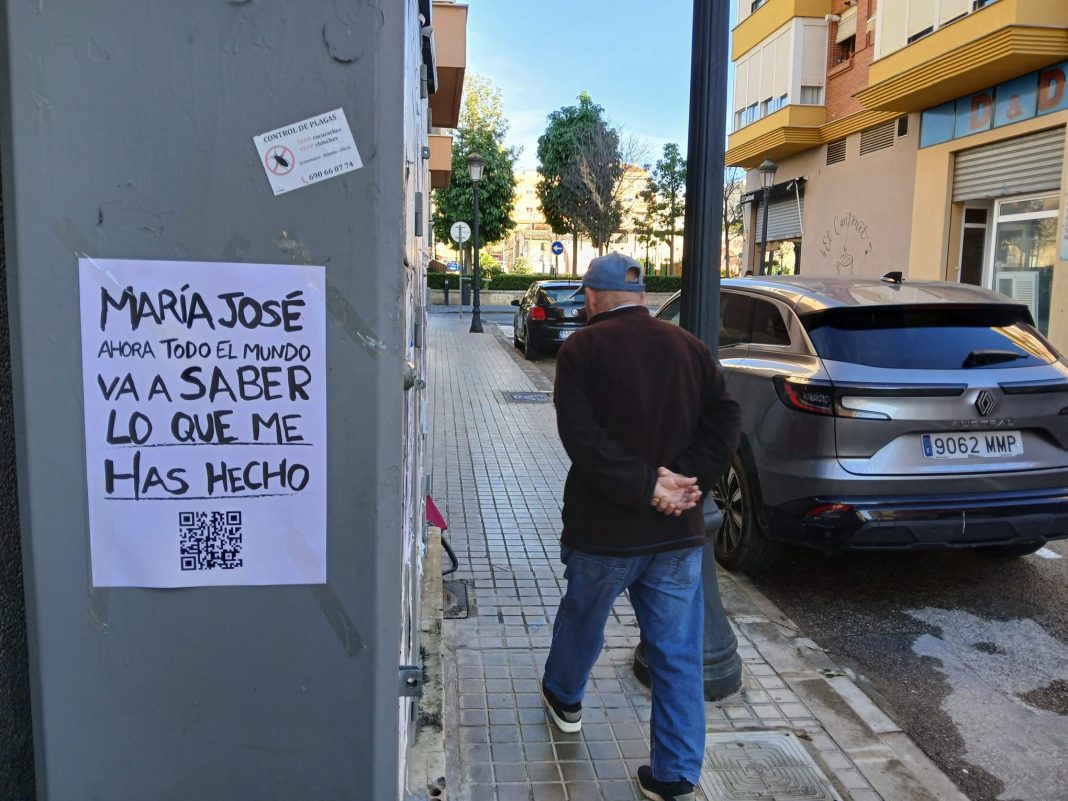 CONTROL DE PLAGAS
STOP cucarachas
STOP chinches
Económico - Rápido - Eficaz
690 66 07 74
MARÍA JOSÉ
AHORA TODO EL MUNDO
VA A SABER
LO QUE ME
HAS HECHO
D&D
El Cantonet
AUSTRAL
9062 MMP